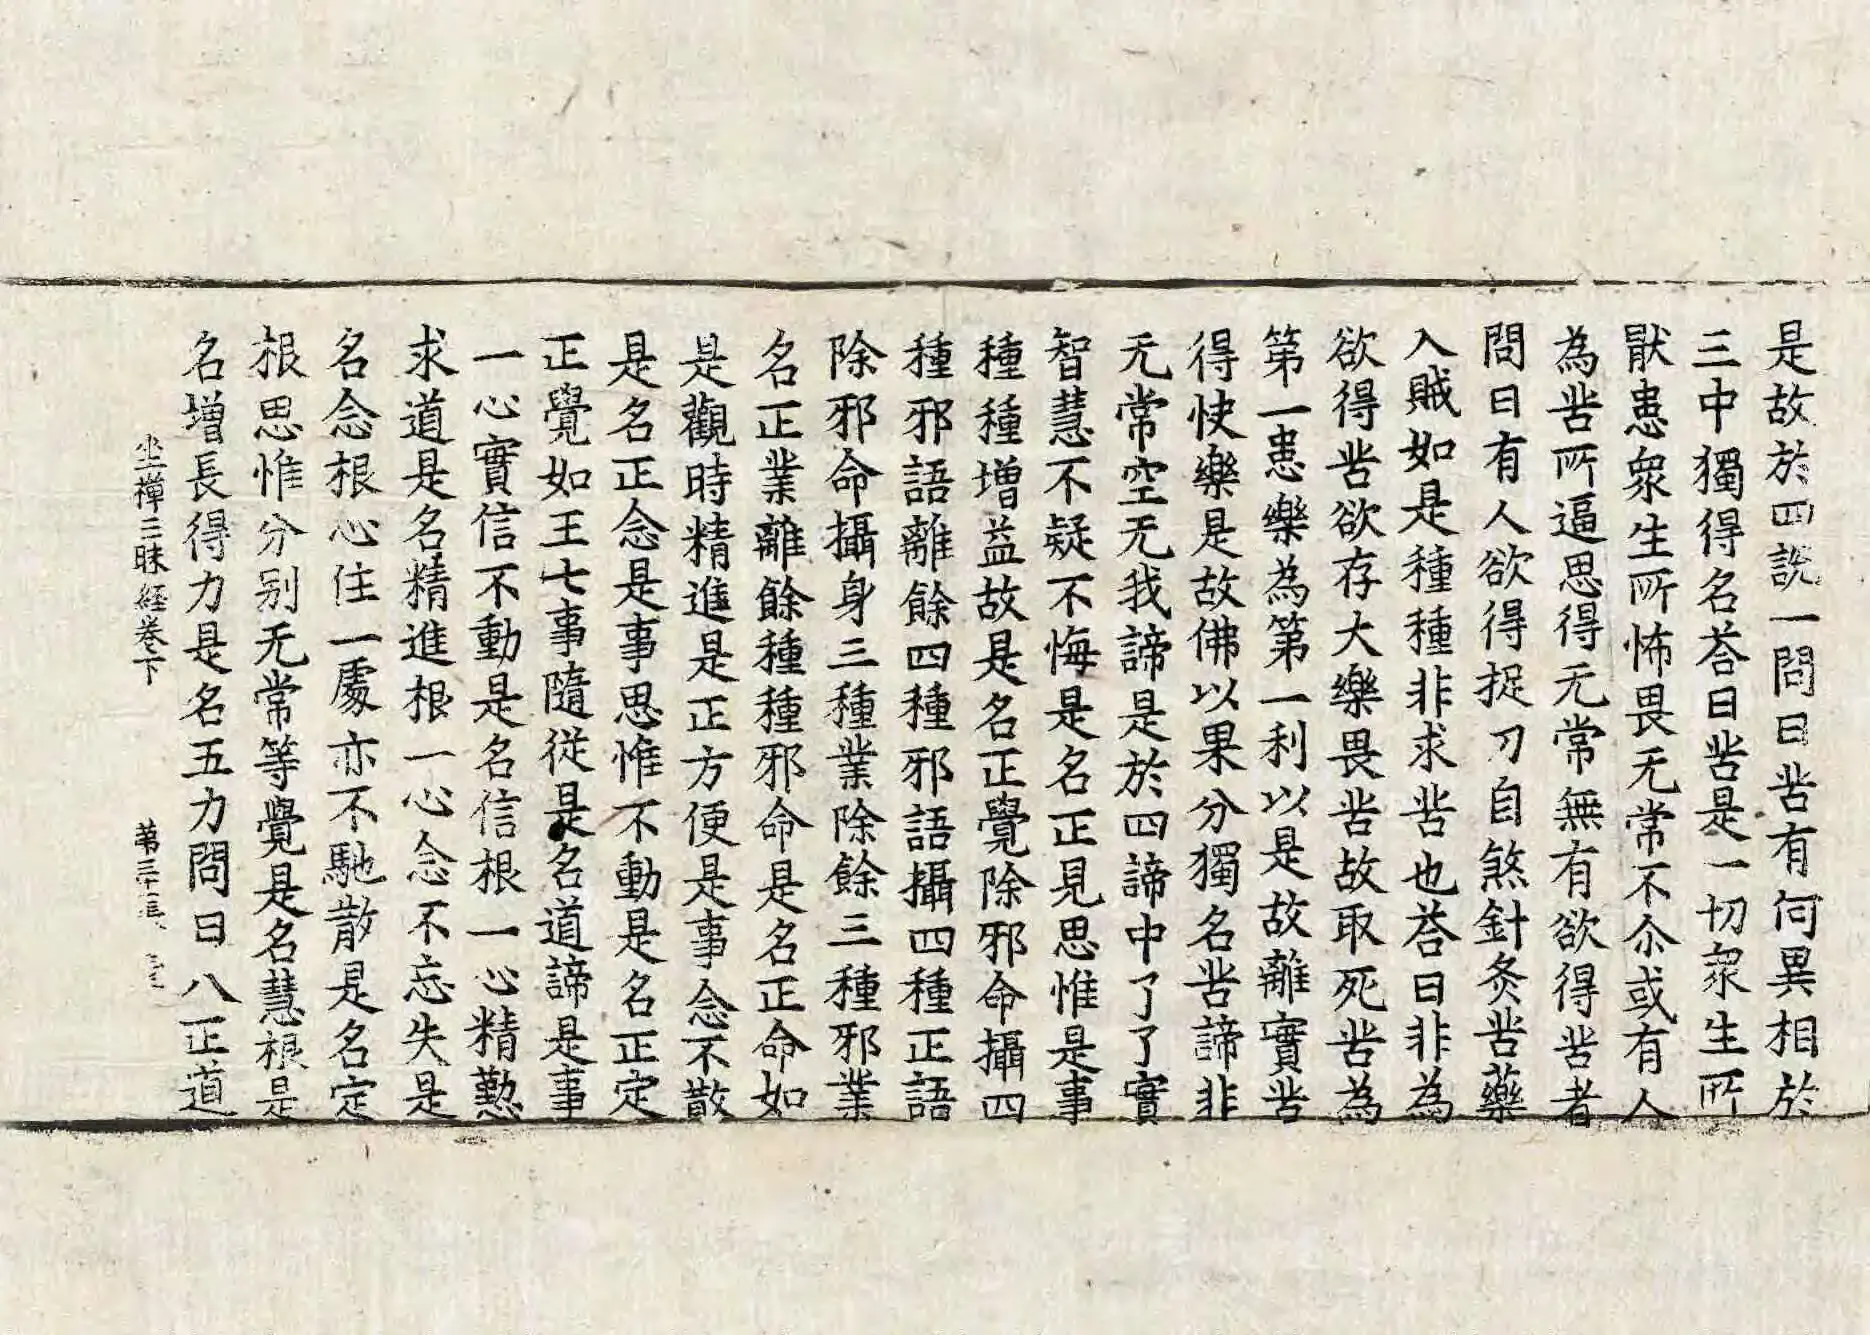 是故於四說一問曰苦有何異相於
三中獨得名荅曰苦是一切衆生所
猒患衆生所怖畏无常不尒或有人
為苦所逼思得无常無有欲得苦者
問曰有人欲得捉刀自煞針灸苦藥
入賊如是種種非求苦也荅曰非為
欲得苦欲存大樂畏苦故取死苦為
第一患樂為第一利以是故離實苦
得快樂是故佛以果分獨名苦諦非
无常空无我諦是於四諦中了了實
智慧不疑不悔是名正見思惟是事
種種增益故是名正覺除邪命攝四
種邪語離餘四種邪語攝四種正語
除邪命攝身三種業除餘三種邪業
名正業離餘種種邪命是名正命如
是觀時精進是正方便是事念不散
是名正念是事思惟不動是名正定
正覺如王七事隨從是名道諦是事
一心實信不動是名信根一心精懃
求道是名精進根一心念不忘失是
名念根心住一處亦不馳散是名定
根思惟分别无常等覺是名慧根是
名增長得力是名五力問曰八正道
坐禪三昧經卷下 第三十三張